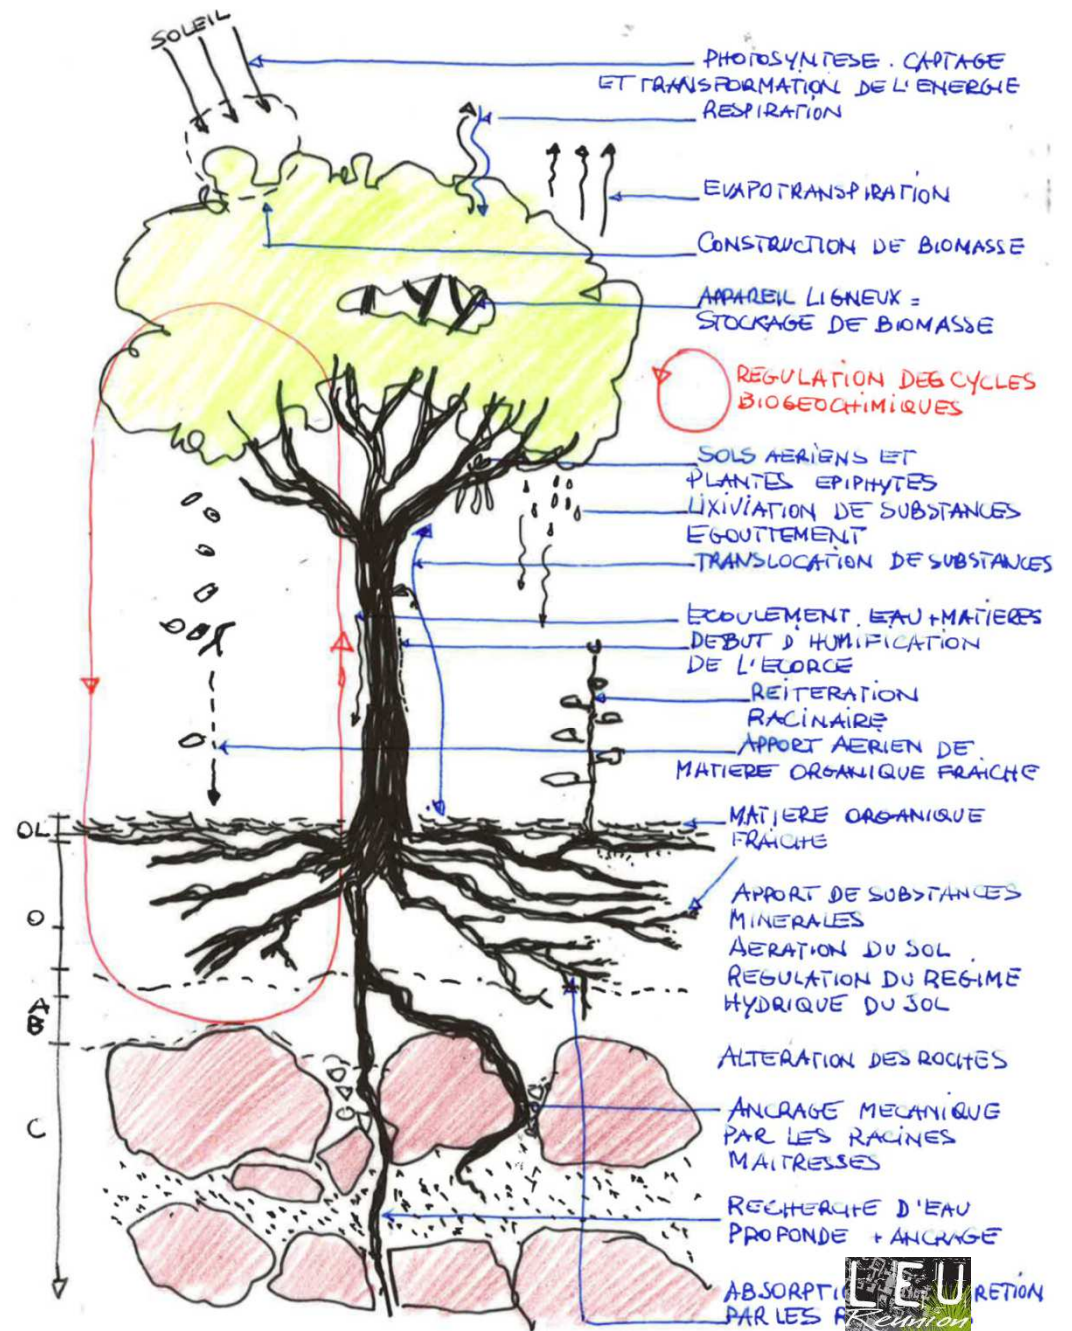 SOLEIL
PHOTOSYNTESE. CAPTAGE
ET TRANSFORMATION DE L'ENERGIE
RESPIRATION
EVAPOTRANSPIRATION
CONSTRUCTION DE BIOMASSE
APPAREIL LIGNEUX =
STOCKAGE DE BIOMASSE
REGULATION DES CYCLES
BIOGEOCHIMIQUES
SOLS AERIENS ET
PLANTES EPIPHYTES
LIXIVIATION DE SUBSTANCES
EGOUTTEMENT
TRANSLOCATION DE SUBSTANCES
ECOULEMENT. EAU + MATIERES
DEBUT D'HUMIFICATION
DE L'ECORCE
REITERATION
RACINAIRE
APPORT AERIEN DE
MATIERE ORGANIQUE FRAICHE
OL
MATIERE ORGANIQUE
FRAICHE
O
APPORT DE SUBSTANCES
MINERALES
AERATION DU SOL
REGULATION DU REGIME
HYDRIQUE DU SOL
A
B
ALTERATION DES ROCHES
C
ANCRAGE MECANIQUE
PAR LES RACINES
MAITRESSES
RECHERCHE D'EAU
PROFONDE + ANCRAGE
PAR LES
LEU
Réunion